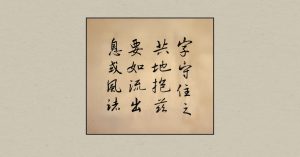 字守住之
共地抱兹
要如流出
息或風法